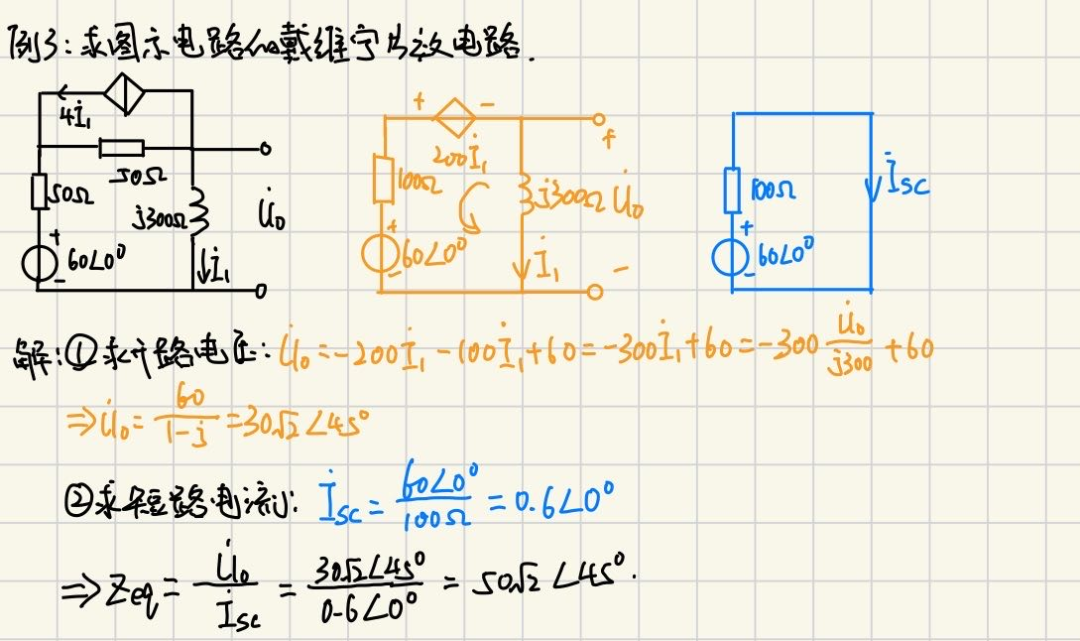 例3:求图示电路的戴维宁等效电路.
4İ₁
50Ω
50Ω
j300Ω
U̇₀
60∠0°
+
-
↓İ₁
+ -
200İ₁
100Ω
j300Ω
U̇₀
60∠0°
+
-
İ₁
+
-
100Ω
İSC
+
-
60∠0°
解:①求开路电压: U̇₀=-200İ₁-100İ₁+60=-300İ₁+60=-300 U̇₀/j300 +60
⇒U̇₀= 60/1-j =30√2∠45°
②求短路电流: İSC= 60∠0°/100Ω = 0.6∠0°
⇒Zeq= U̇₀/İSC = 30√2∠45°/0.6∠0° = 50√2∠45°.